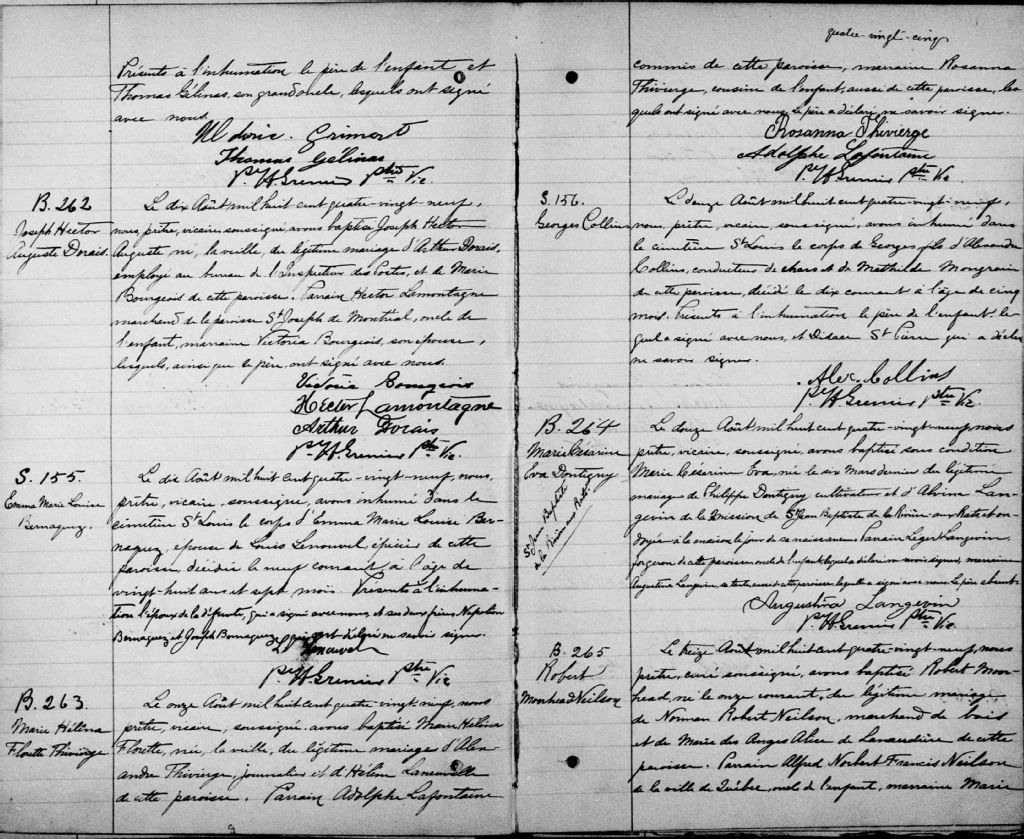 Présents à l'inhumation le père de l'enfant, et
Thomas Gélinas, son grand oncle, lesquels ont signé
avec nous.
Thomas Gélinas
P. H. Grenier ptre Vic
B. 262
Joseph Hector
Auguste Dorais.
Le dix Août mil huit cent quatre-vingt-neuf,
nous, prêtre, vicaire, soussigné, avons baptisé Joseph Hector
Auguste, né, la veille, du légitime mariage d'Arthur Dorais,
employé au bureau de l'Inspecteur des Postes, et de Marie
Bourgeois de cette paroisse. Parrain Hector Lamontagne
marchand de la paroisse St Joseph de Montréal, oncle de
l'enfant, marraine Victoria Bourgeois, son épouse,
lesquels, ainsi que le père, ont signé avec nous.
Victoria Bourgeois
Hector Lamontagne
Arthur Dorais
P. H. Grenier ptre Vic
S. 155.
Emma Marie Louise
Bernaquez.
Le dix Août mil huit cent quatre-vingt-neuf, nous,
prêtre, vicaire, soussigné, avons inhumé dans le
cimetière St Louis le corps d'Emma Marie Louise Ber-
naquez, épouse de Louis Lenouvel, épicier de cette
paroisse, décédée le neuf courant à l'âge de
vingt-huit ans et sept mois. Présents à l'inhuma-
tion l'époux de la défunte, qui a signé avec nous, et ses deux frères, Napoléon
Bernaquez et Joseph Bernaquez, qui ont déclaré ne savoir signer.
Lenouvel
P. H. Grenier ptre Vic
B. 263.
Marie Hélèna
Florette Thivierge
Le onze Août mil huit cent quatre-vingt-neuf, nous
prêtre, vicaire, soussigné, avons baptisé Marie Hélèna
Florette, née, la veille, du légitime mariage d'Alex-
andre Thivierge, journalier et d'Hélène Laneuville
de cette paroisse. Parrain Adolphe Lafontaine
quatre-vingt-cinq
commis de cette paroisse, marraine Rosanna
Thivierge, cousine de l'enfant, aussi de cette paroisse, les-
quels ont signé avec nous. Le père a déclaré ne savoir signer.
Rosanna Thivierge
Adolphe Lafontaine
P. H. Grenier ptre Vic.
S. 156.
Georges Collins
Le douze Août mil huit cent quatre-vingt-neuf,
nous, prêtre, vicaire, soussigné, avons inhumé dans
le cimetière St Louis le corps de Georges, fils d'Alexandre
Collins, conducteur de chars et de Mathilde Mongrain
de cette paroisse, décédé le dix courant à l'âge de cinq
mois. Présents à l'inhumation le père de l'enfant, le-
quel a signé avec nous, et Didace St Pierre qui a déclaré
ne savoir signer.
Alex. Collins
P. H. Grenier ptre Vic
B. 264
Marie Césarine
Eva Dontigny
St Jean Baptiste
de la Rivière aux Rats
Le douze Août mil huit cent quatre-vingt-neuf, nous
prêtre, vicaire, soussigné, avons baptisé sous condition
Marie Césarine Eva, née le six Mars dernier du légitime
mariage de Philippe Dontigny cultivateur et d'Alvina Lan-
gevin de la Mission de St Jean Baptiste de la Rivière aux Rats et on-
doyée à la maison le jour de sa naissance. Parrain Léger Langevin
forgeron de cette paroisse, oncle de l'enfant, lequel a déclaré ne savoir signer, marraine
Augustina Langevin, sa tante, aussi de cette paroisse, laquelle a signé avec nous. Le père absent.
Augustina Langevin
P. H. Grenier ptre Vic.
B. 265
Robert
Morehead Neilson
Le treize Août mil huit cent quatre-vingt-neuf, nous
prêtre, curé soussigné, avons baptisé Robert More-
head, né le onze courant, du légitime mariage
de Norman Robert Neilson, marchand de bois
et de Marie des Anges Alice de Lanaudière de cette
paroisse. Parrain Alfred Norbert Francis Neilson
de la ville de Québec, oncle de l'enfant, marraine Marie